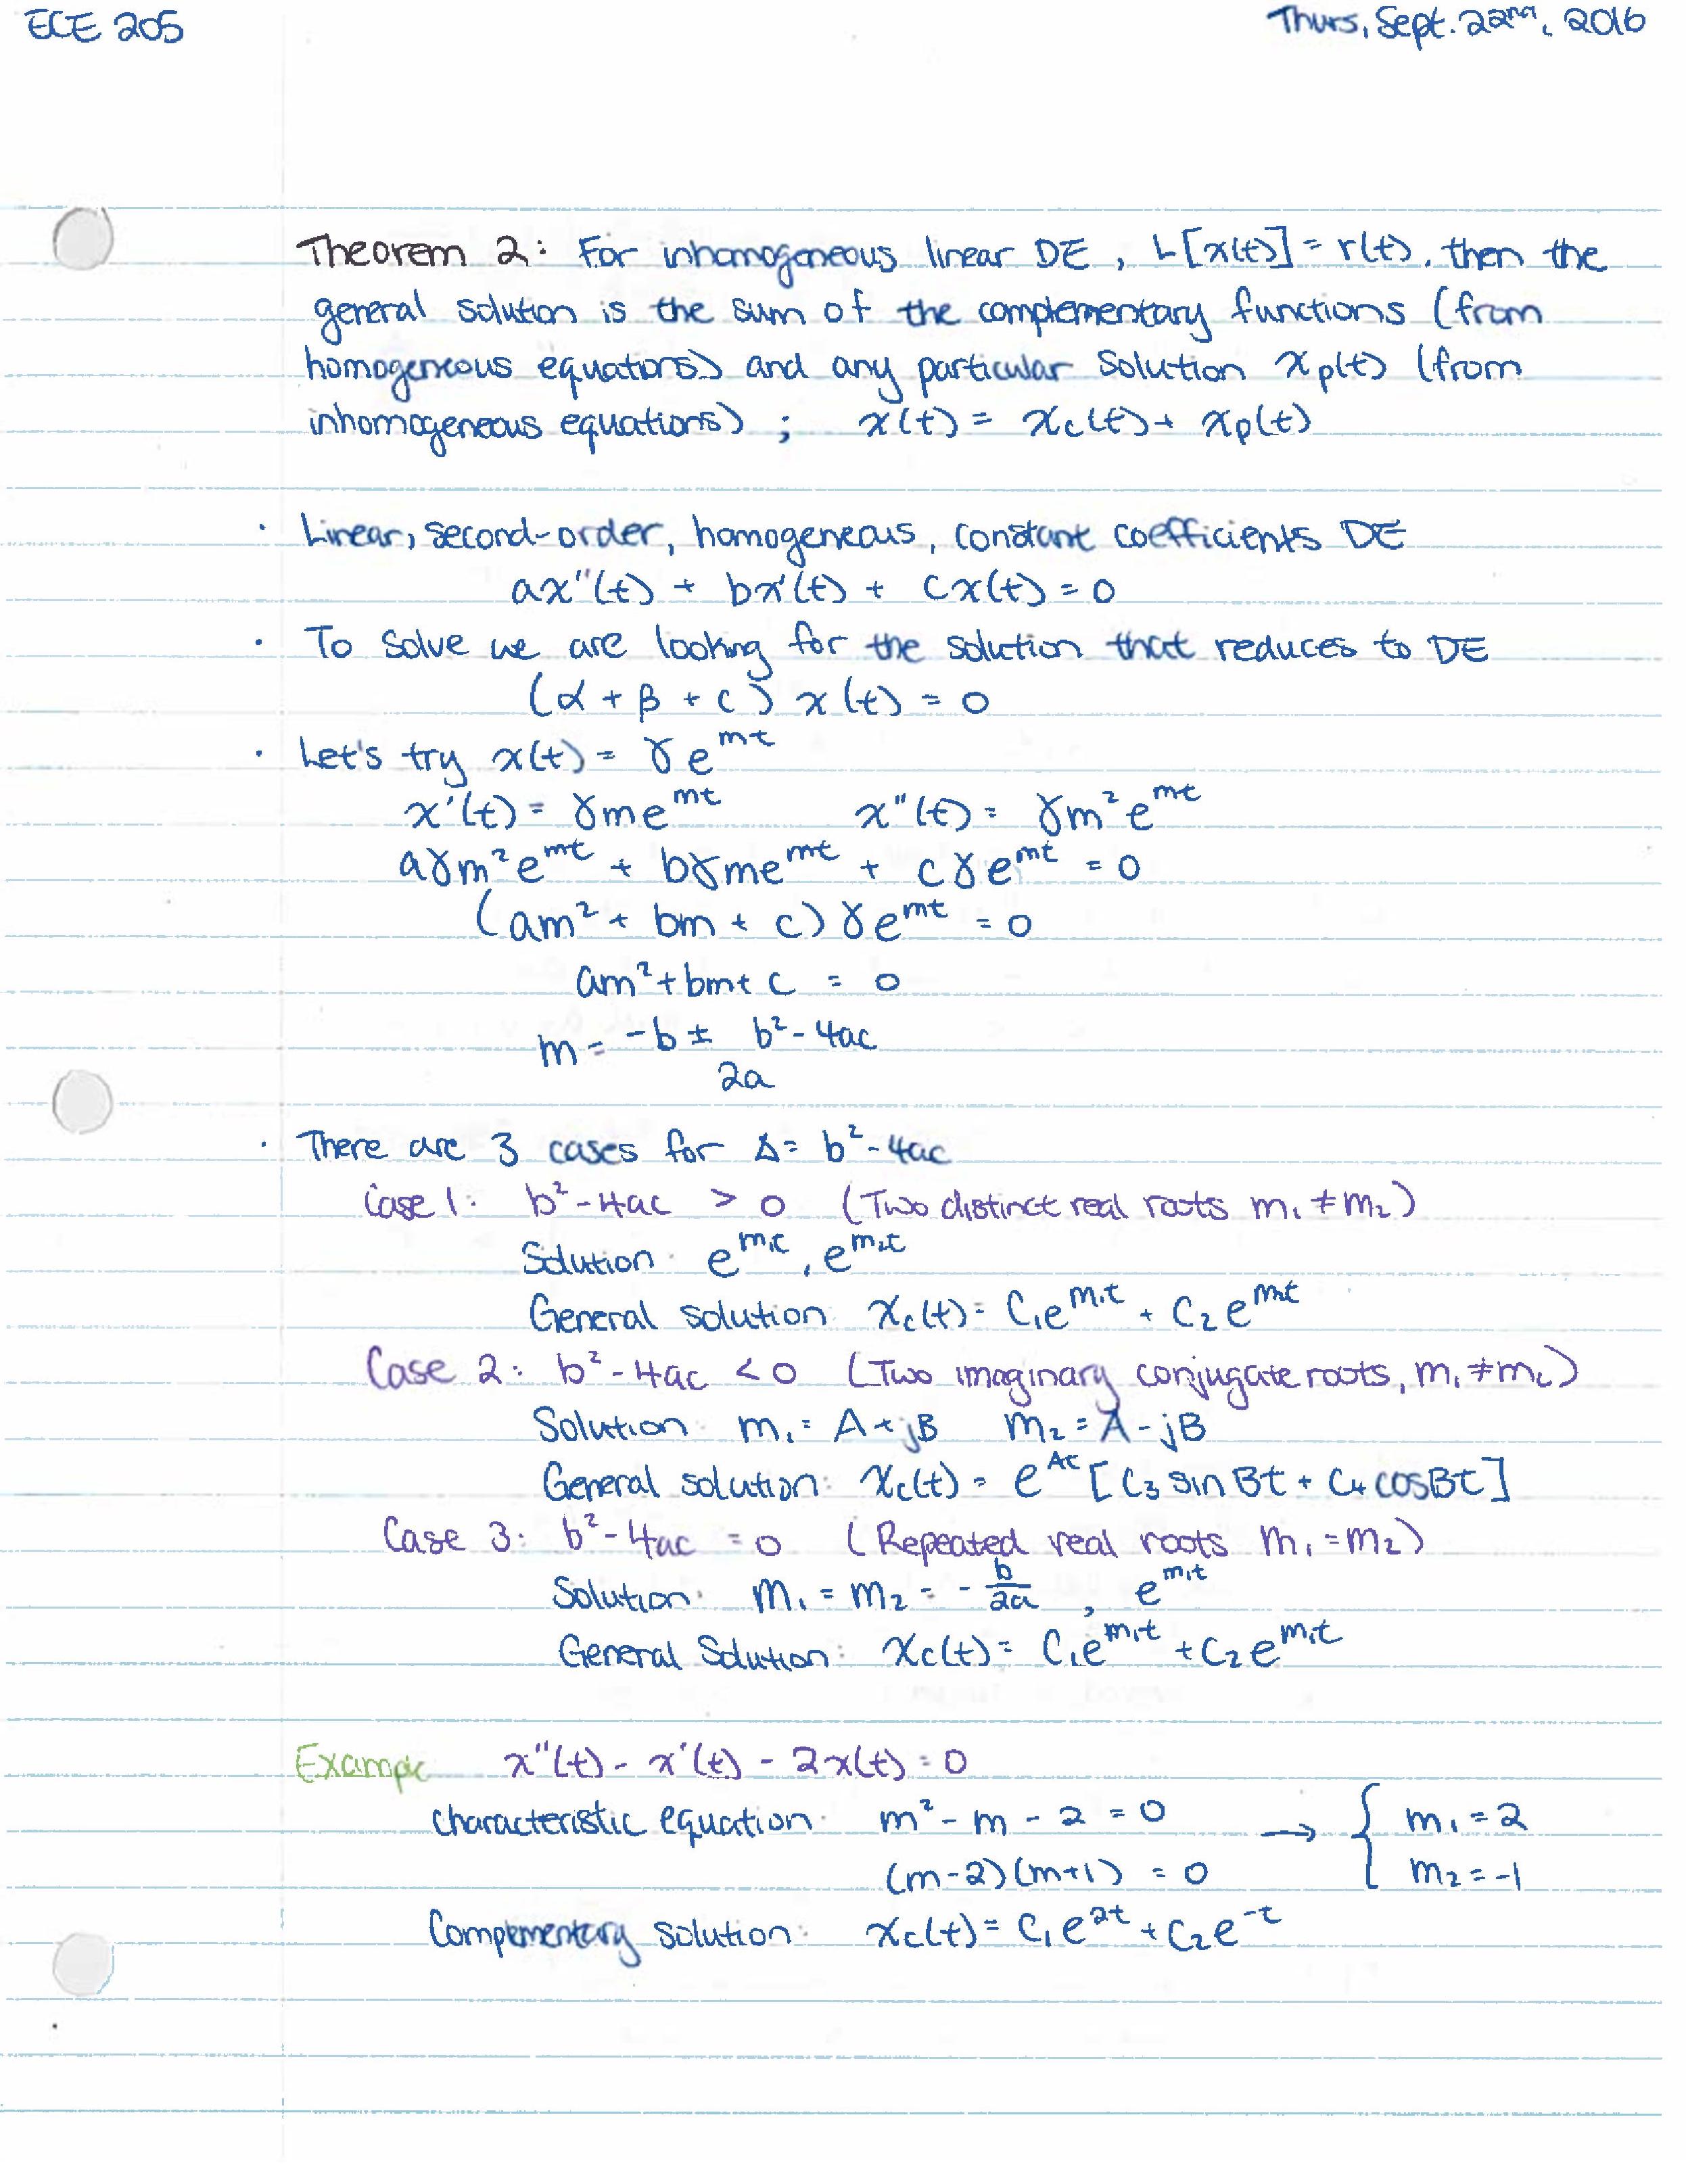 ECE 205
Thurs, Sept. 22nd, 2016
Theorem 2: For inhomogeneous linear DE, L[x(t)] = r(t), then the
general solution is the sum of the complementary functions (from
homogeneous equations) and any particular solution xp(t) (from
inhomogeneous equations) ; x(t) = xc(t) + xp(t)
· Linear, second-order, homogeneous, constant coefficients DE
ax''(t) + bx'(t) + cx(t) = 0
· To solve we are looking for the solution that reduces to DE
(α + β + c) x(t) = 0
· Let's try x(t) = γe^mt
x'(t) = γme^mt x''(t) = γm²e^mt
aγm²e^mt + bγme^mt + cγe^mt = 0
(am² + bm + c) γe^mt = 0
am² + bm + c = 0
m = -b ± b² - 4ac
2a
· There are 3 cases for Δ = b² - 4ac
Case 1: b² - 4ac > 0 (Two distinct real roots m₁ ≠ m₂)
Solution: e^m₁t, e^m₂t
General solution: xc(t) = C₁e^m₁t + C₂e^m₂t
Case 2: b² - 4ac < 0 (Two imaginary conjugate roots, m₁ ≠ m₂)
Solution: m₁ = A + jB m₂ = A - jB
General solution: xc(t) = e^At [C₃ sin Bt + C₄ cos Bt]
Case 3: b² - 4ac = 0 (Repeated real roots m₁ = m₂)
Solution: m₁ = m₂ = - b/2a , e^m₁t
General Solution: xc(t) = C₁e^m₁t + C₂e^m₁t
Example x''(t) - x'(t) - 2x(t) = 0
characteristic equation: m² - m - 2 = 0 → { m₁ = 2
(m-2)(m+1) = 0 m₂ = -1
Complementary solution: xc(t) = C₁e^2t + C₂e^-t